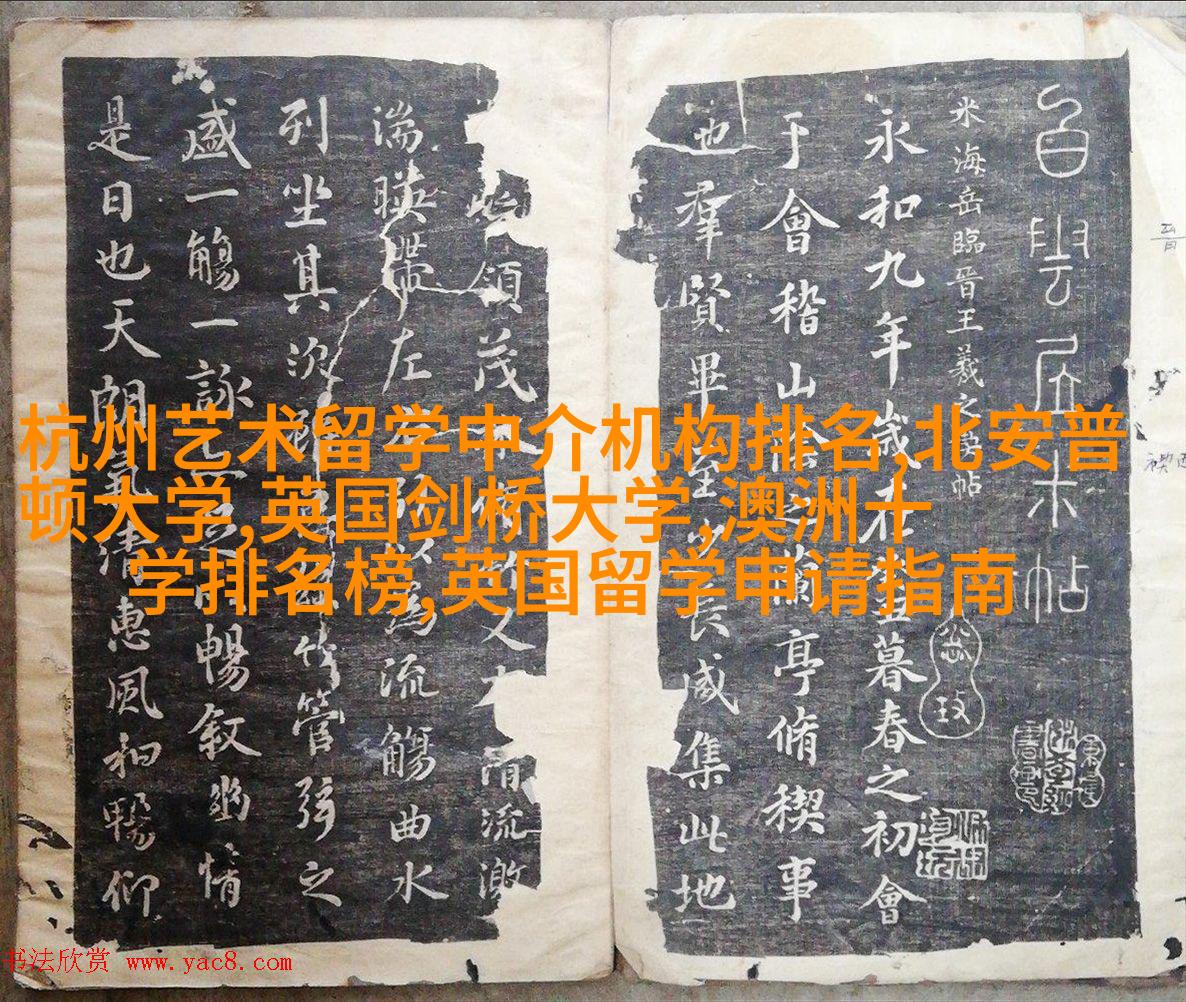 白雲居米帖
米海岳臨晉王羲之禊帖
永和九年歲在癸丑暮春之初會
于會稽山陰之蘭亭脩禊事
也羣賢畢至少長咸集此地
領茂林又有清流激
湍暎帶左右引以為流觴曲水
列坐其次雖無竹管弦之
盛一觴一詠暢敘幽情
是日也天朗氣清惠風和暢仰
杭州艺术留学中介机构排名,北安普
顿大学,英国剑桥大学,澳洲十
学排名榜,英国留学申请指南
书法欣赏 www.yac8.com